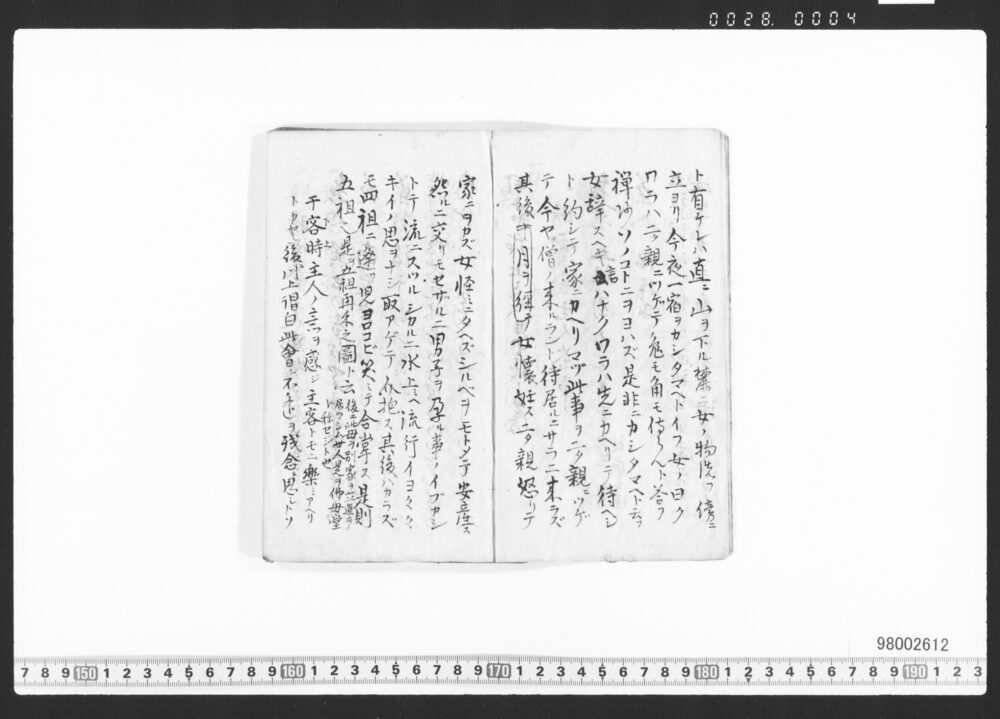 0028. 0004
ト有ケレハ直ニ山ヲ下ル麓ニ女ノ物洗フ傍ニ
立ヨリ今夜一宿ヲカシタマヘトイフ女ノ曰ク
ワラハニ親ニツゲテ兎モ角モ侍らんト答フ
禅师ソノコトニヲヨハズ是非ニカシタマヘト云フ
女辞スヘキ言ハナクワラハ先ニカヘリテ待ヘシ
ト約シテ家ニカヘリマヅ此事ヲニタ親ニツゲ
テ今ヤ僧ノ来ルラント待居ルニサラニ来ラズ
其後十月ヲ経テ女懐妊スニタ親怒リテ
家ニヲカズ女怪ミニタヘズシルベヲモトメテ安産ス
然ルニ交リモセザルニ男子ヲ孕ル事ノイブカシ
トテ流ニスツルシカルニ水上ミヘ流行イヨ々々
キイノ思ヲナシ取アゲテ介抱ス其後ハカラズ
モ四祖ニ逢フ児ヨロコビ笑ミテ合掌ス是則
五祖也是ヲ五祖再来之圖ト云 後ニ此母ヲ別家ヲ立
居ラシム世人是ヲ佛母堂
ト称セシト也
于客時主人ノ言ヲ感シ主客トモニ樂ミアヘリ
後 上 谓曰此會ニ不 ヲ残念ニ思シトソ
98002612
7 8 9 150 1 2 3 4 5 6 7 8 9 160 1 2 3 4 5 6 7 8 9 170 1 2 3 4 5 6 7 8 9 180 1 2 3 4 5 6 7 8 9 190 1 2 3